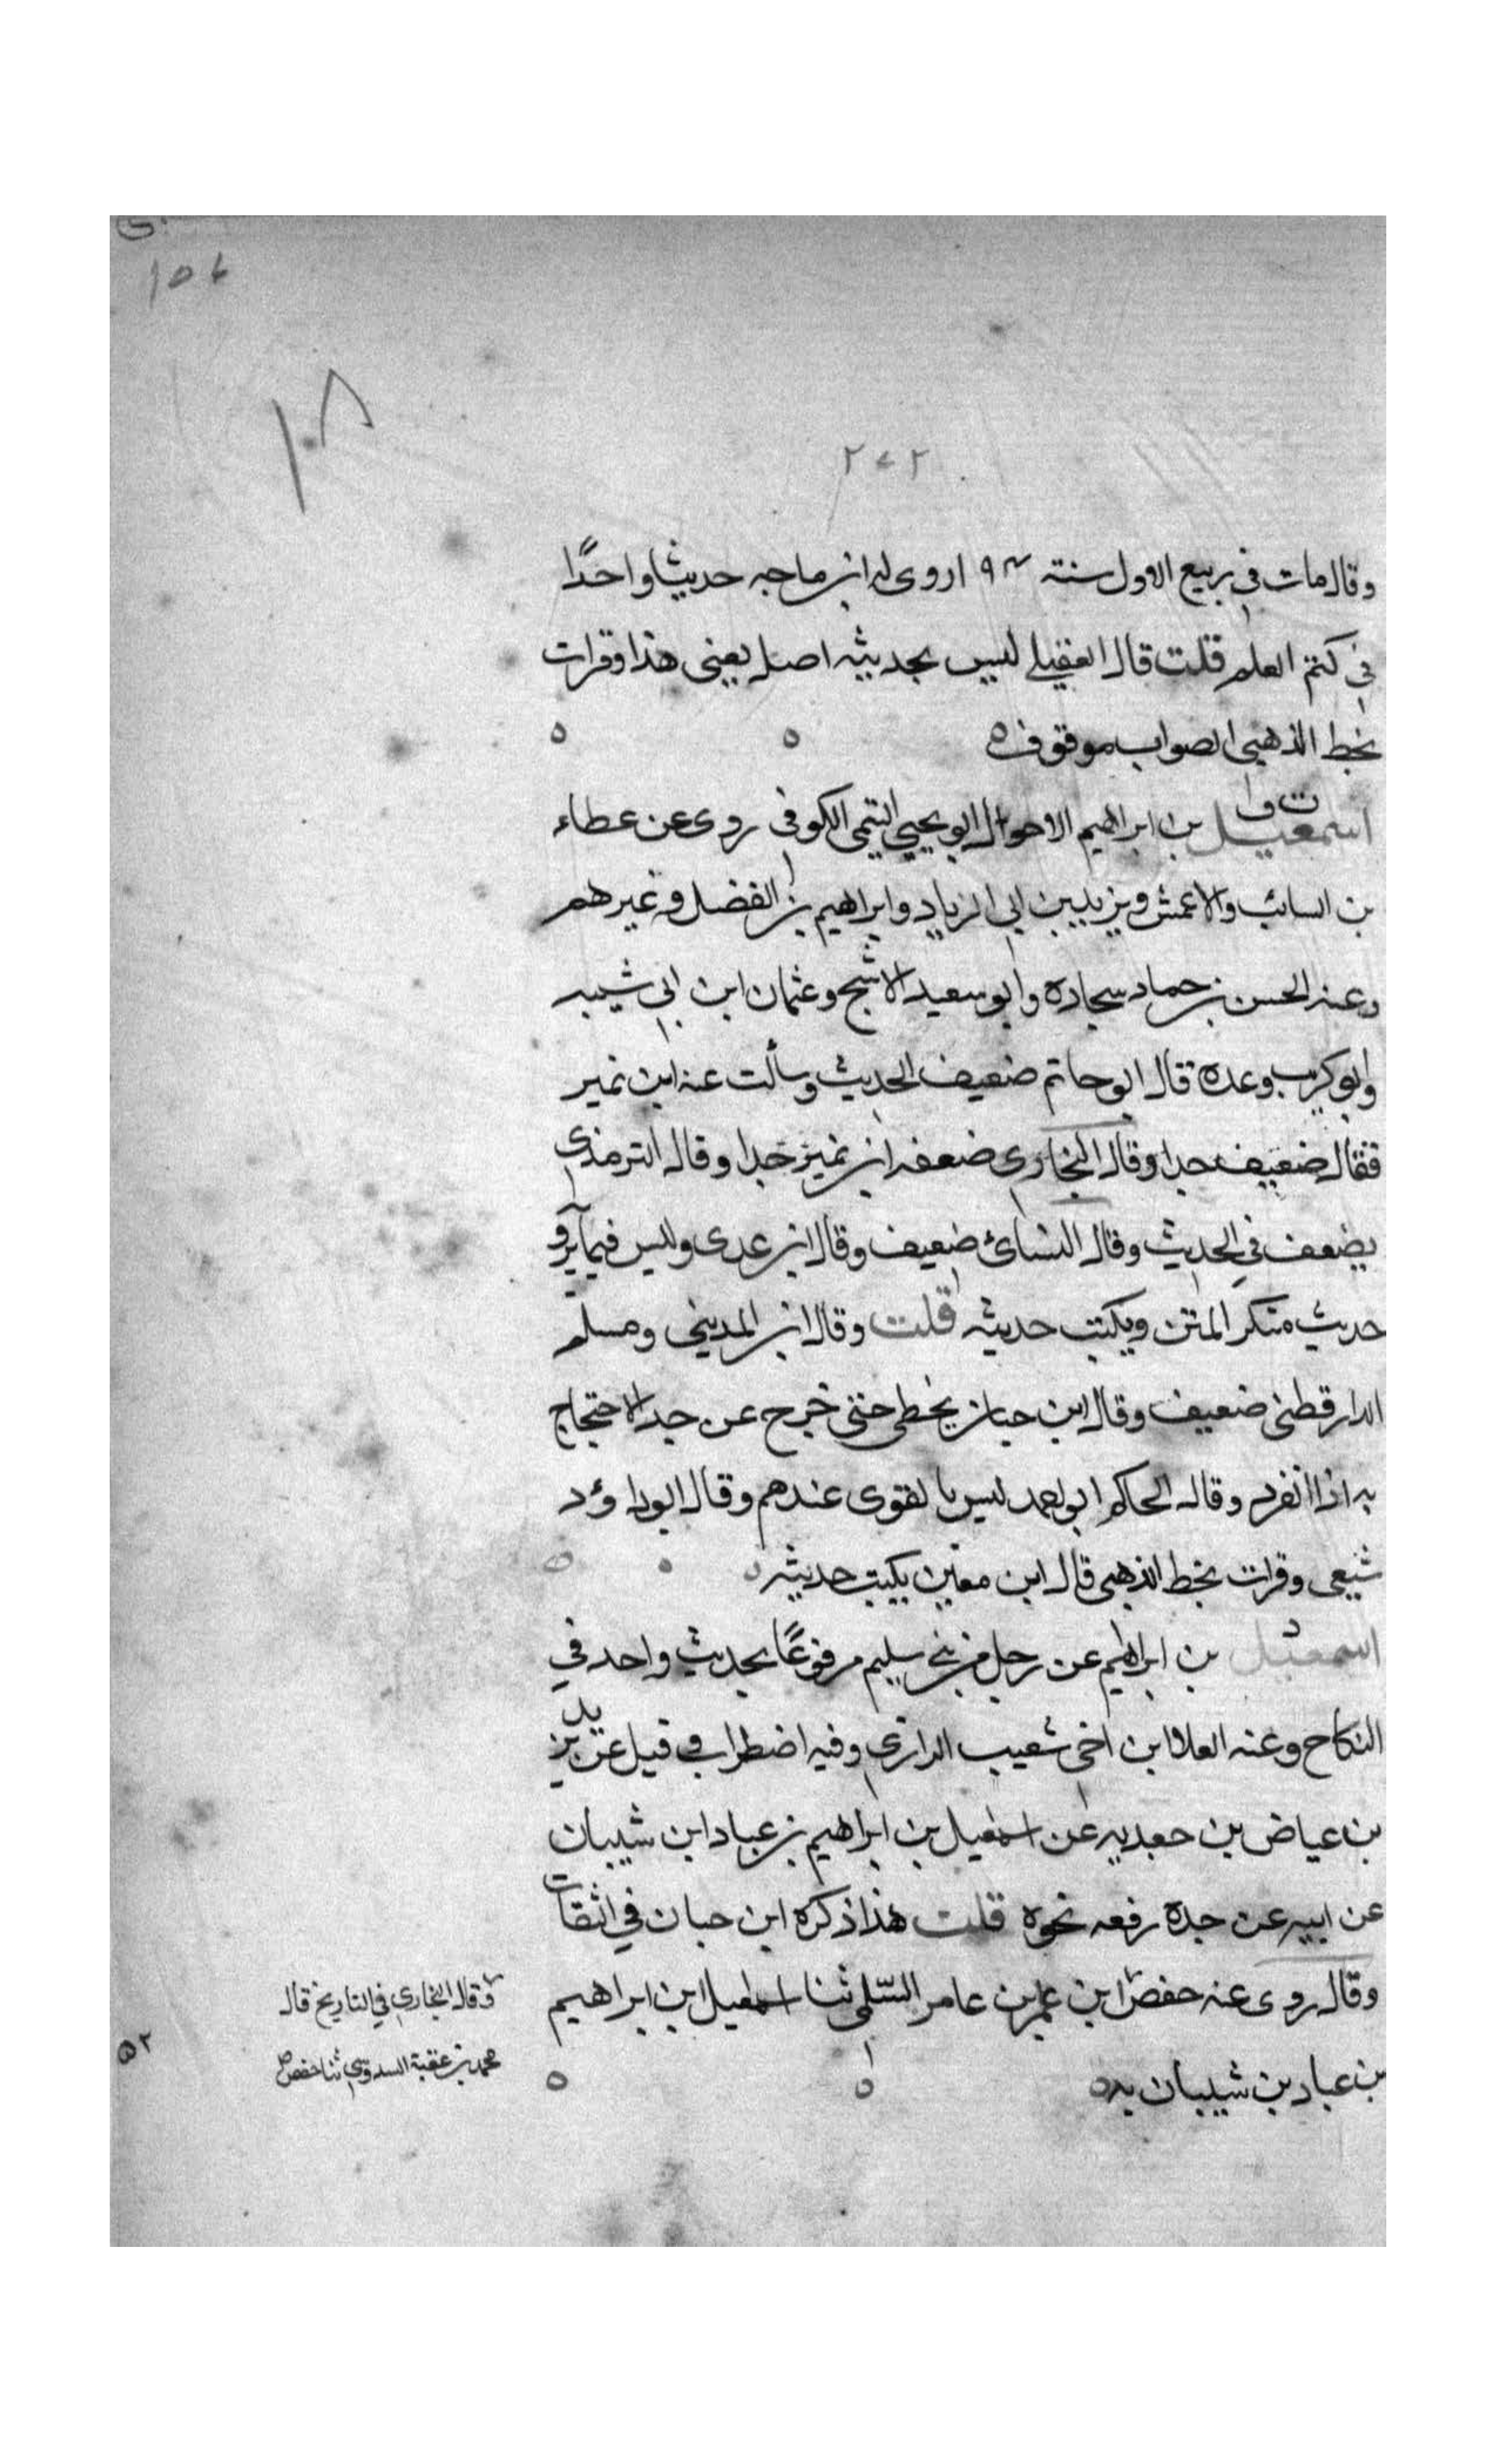 ١٥٤
١٠٨
٢٧٢
وقال مات في ربيع الاول سنة ١٩٤ روى له ابن ماجه حديثا واحدًا
في كتم العلم قلت قال العقيلي ليس بحديثه اصل يعني هذا وقرات
بخط الذهبي الصواب موقوف ٥ ٥ ٥
ت ق
اسمعيل بن ابراهيم الاحول ابو يحيي التيمي الكوفي روى عن عطاء
بن السائب والاعمش ويزيد بن ابي الزياد وابراهيم بن الفضل وغيرهم
وعنه الحسن بن حماد سجادة وابو سعيد الاشج وعثمان ابن ابي شيبه
وابو كريب وعدة قال ابو حاتم ضعيف الحديث وسألت عنه ابن نمير
فقال ضعيف جدا وقال البخاري ضعفه ابن نمير جدا وقال الترمذي
يضعف في الحديث وقال النسائ ضعيف وقال ابن عدى وليس فيما يرو
حديث منكر المتن ويكتب حديثه قلت وقال ابن المديني ومسلم
الدارقطني ضعيف وقال ابن حبان يخطى حتى خرج عن حد الاحتجاج
به اذا انفرد وقال الحاكم ابو احمد ليس بالقوى عندهم وقال ابو داؤد
شيعي وقرات بخط الذهبي قال ابن معين يكتب حديثه ٥ ٥ ٥
د
اسمعيل بن ابراهيم عن رجل من بني سليم مرفوعًا بحديث واحد في
النكاح وعنه العلا ابن اخي شعيب الرازي وفيه اضطراب قيل عن يزيد
بن عياض بن جعدبه عن اسمعيل بن ابراهيم بن عباد ابن شيبان
عن ابيه عن جده رفعه نحوه قلت هذا ذكره ابن حبان في الثقات
وقال روى عنه حفص ابن عمر بن عامر السّلمي ثنا اسمعيل ابن ابراهيم
بن عباد بن شيبان به ٥ ٥ ٥
وقال البخاري في التاريخ قال
محمد بن عقبة السدوسي ثنا حفص
٥٢